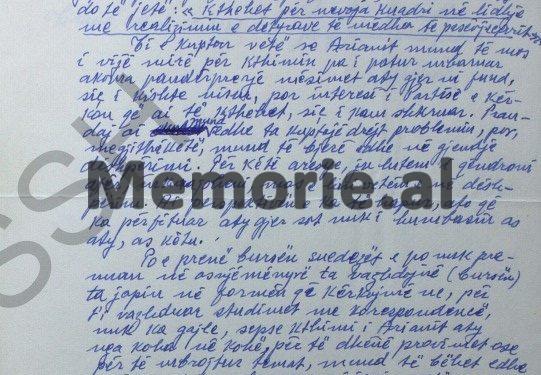 do të jetë: "Kthehet për nevoja kuadri në lidhje
me realizimin e detyrave të mëdha të pesëvjeçarit
Si e kupton vetë se Arianit mund të mos
i vijë mirë për kthimin pa i patur mbaruar
akoma mësimet aty gjer në fund,
siç i kishte nisur, por interesi i Partisë e kër-
kon që ai të kthehet, siç i kam shkruar. Pran-
daj ai mund edhe ta kuptojë drejt problemin, por,
megjithëkëtë, mund të bjerë edhe në gjendje
dëshpërimi. Për këtë arsye, ju lutem i qëndroni
Memorie.al
SSH
ka përfituar aty gjer sot nuk i humbasin as
aty, as këtu.
Po e prenë bursën suedezët e po nuk pra-
nuan në asnjëmënyrë ta vazhdojnë (bursën)
ta japin në formën që kërkojmë ne, për
t'i vazhduar studimet me korrespondencë,
nuk ka gajle, sepse kthimi i Arianit aty
nga koha në kohë, për të dhënë provimet ose
për të mbrojtur temat, mund të bëhet edhe